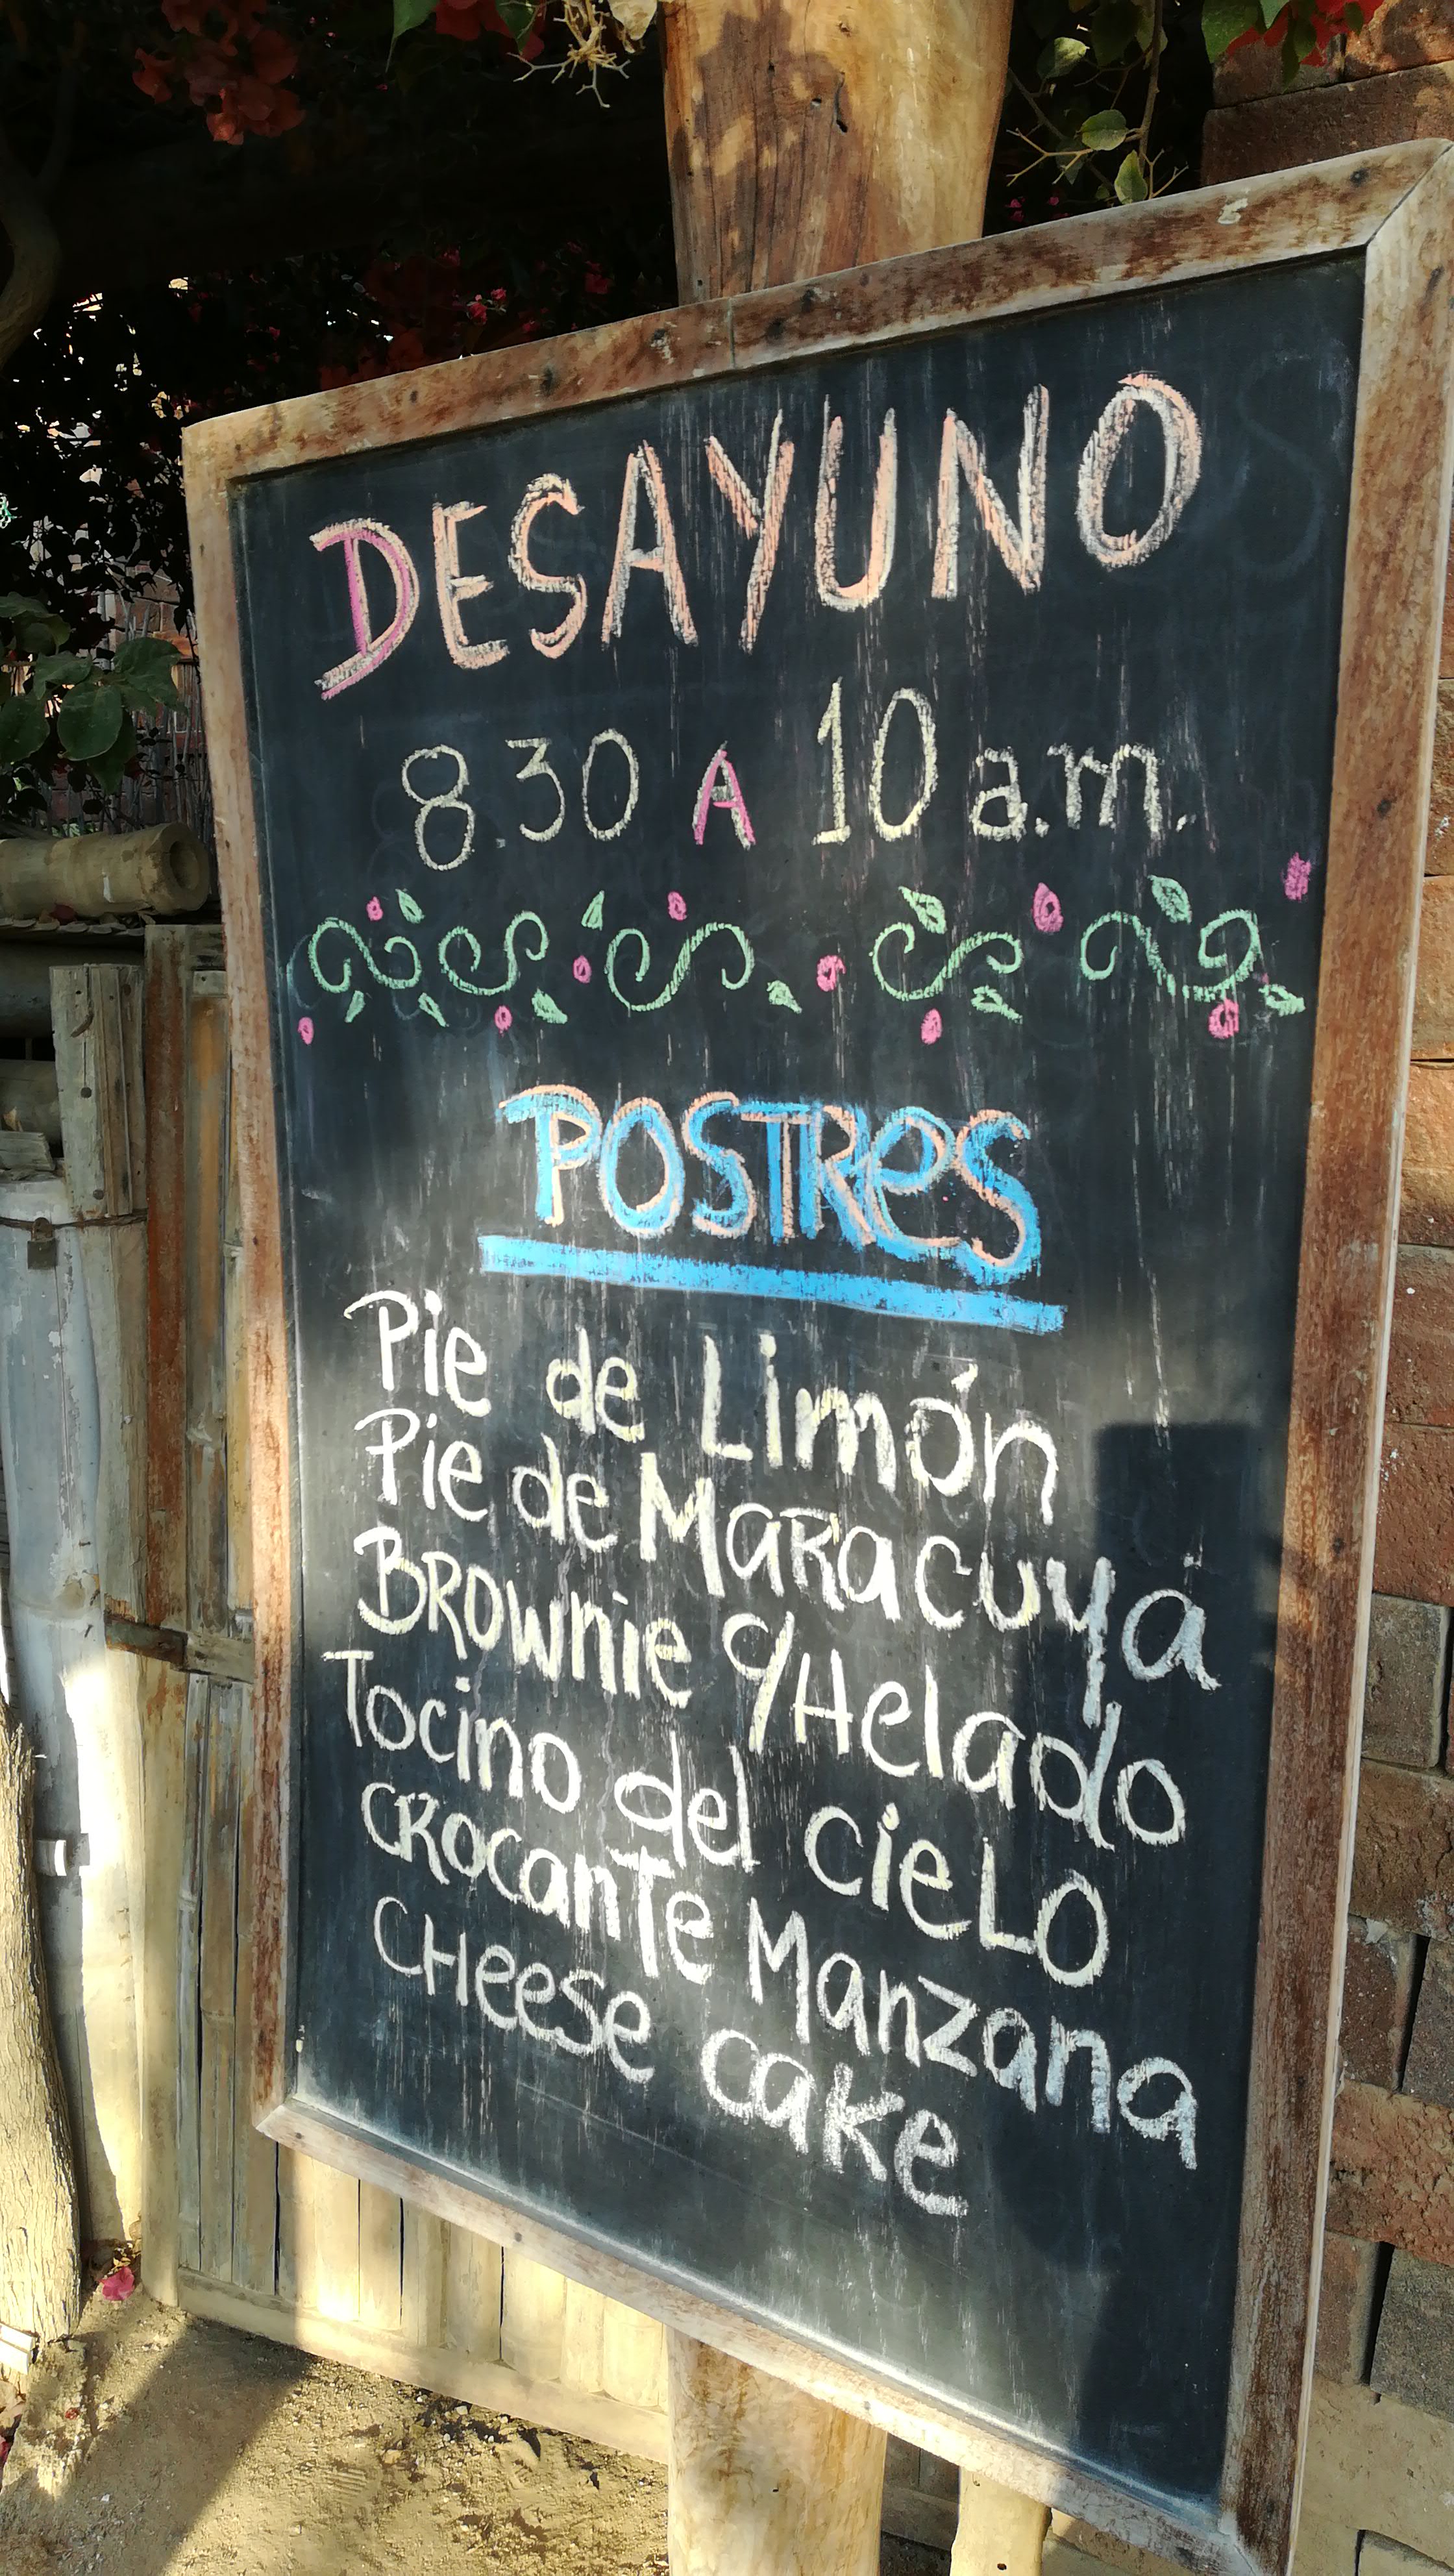 DESAYUNO
8.30 A 10 a.m.
POSTRES
Pie de Limón
Pie de Maracuyá
Brownie c/Helado
Tocino del cielo
Crocante Manzana
Cheese cake